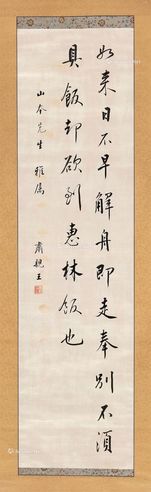 如来日不早解舟即走奉别不须
具饭却欲到惠林饭也
山本先生雅属
肃亲王